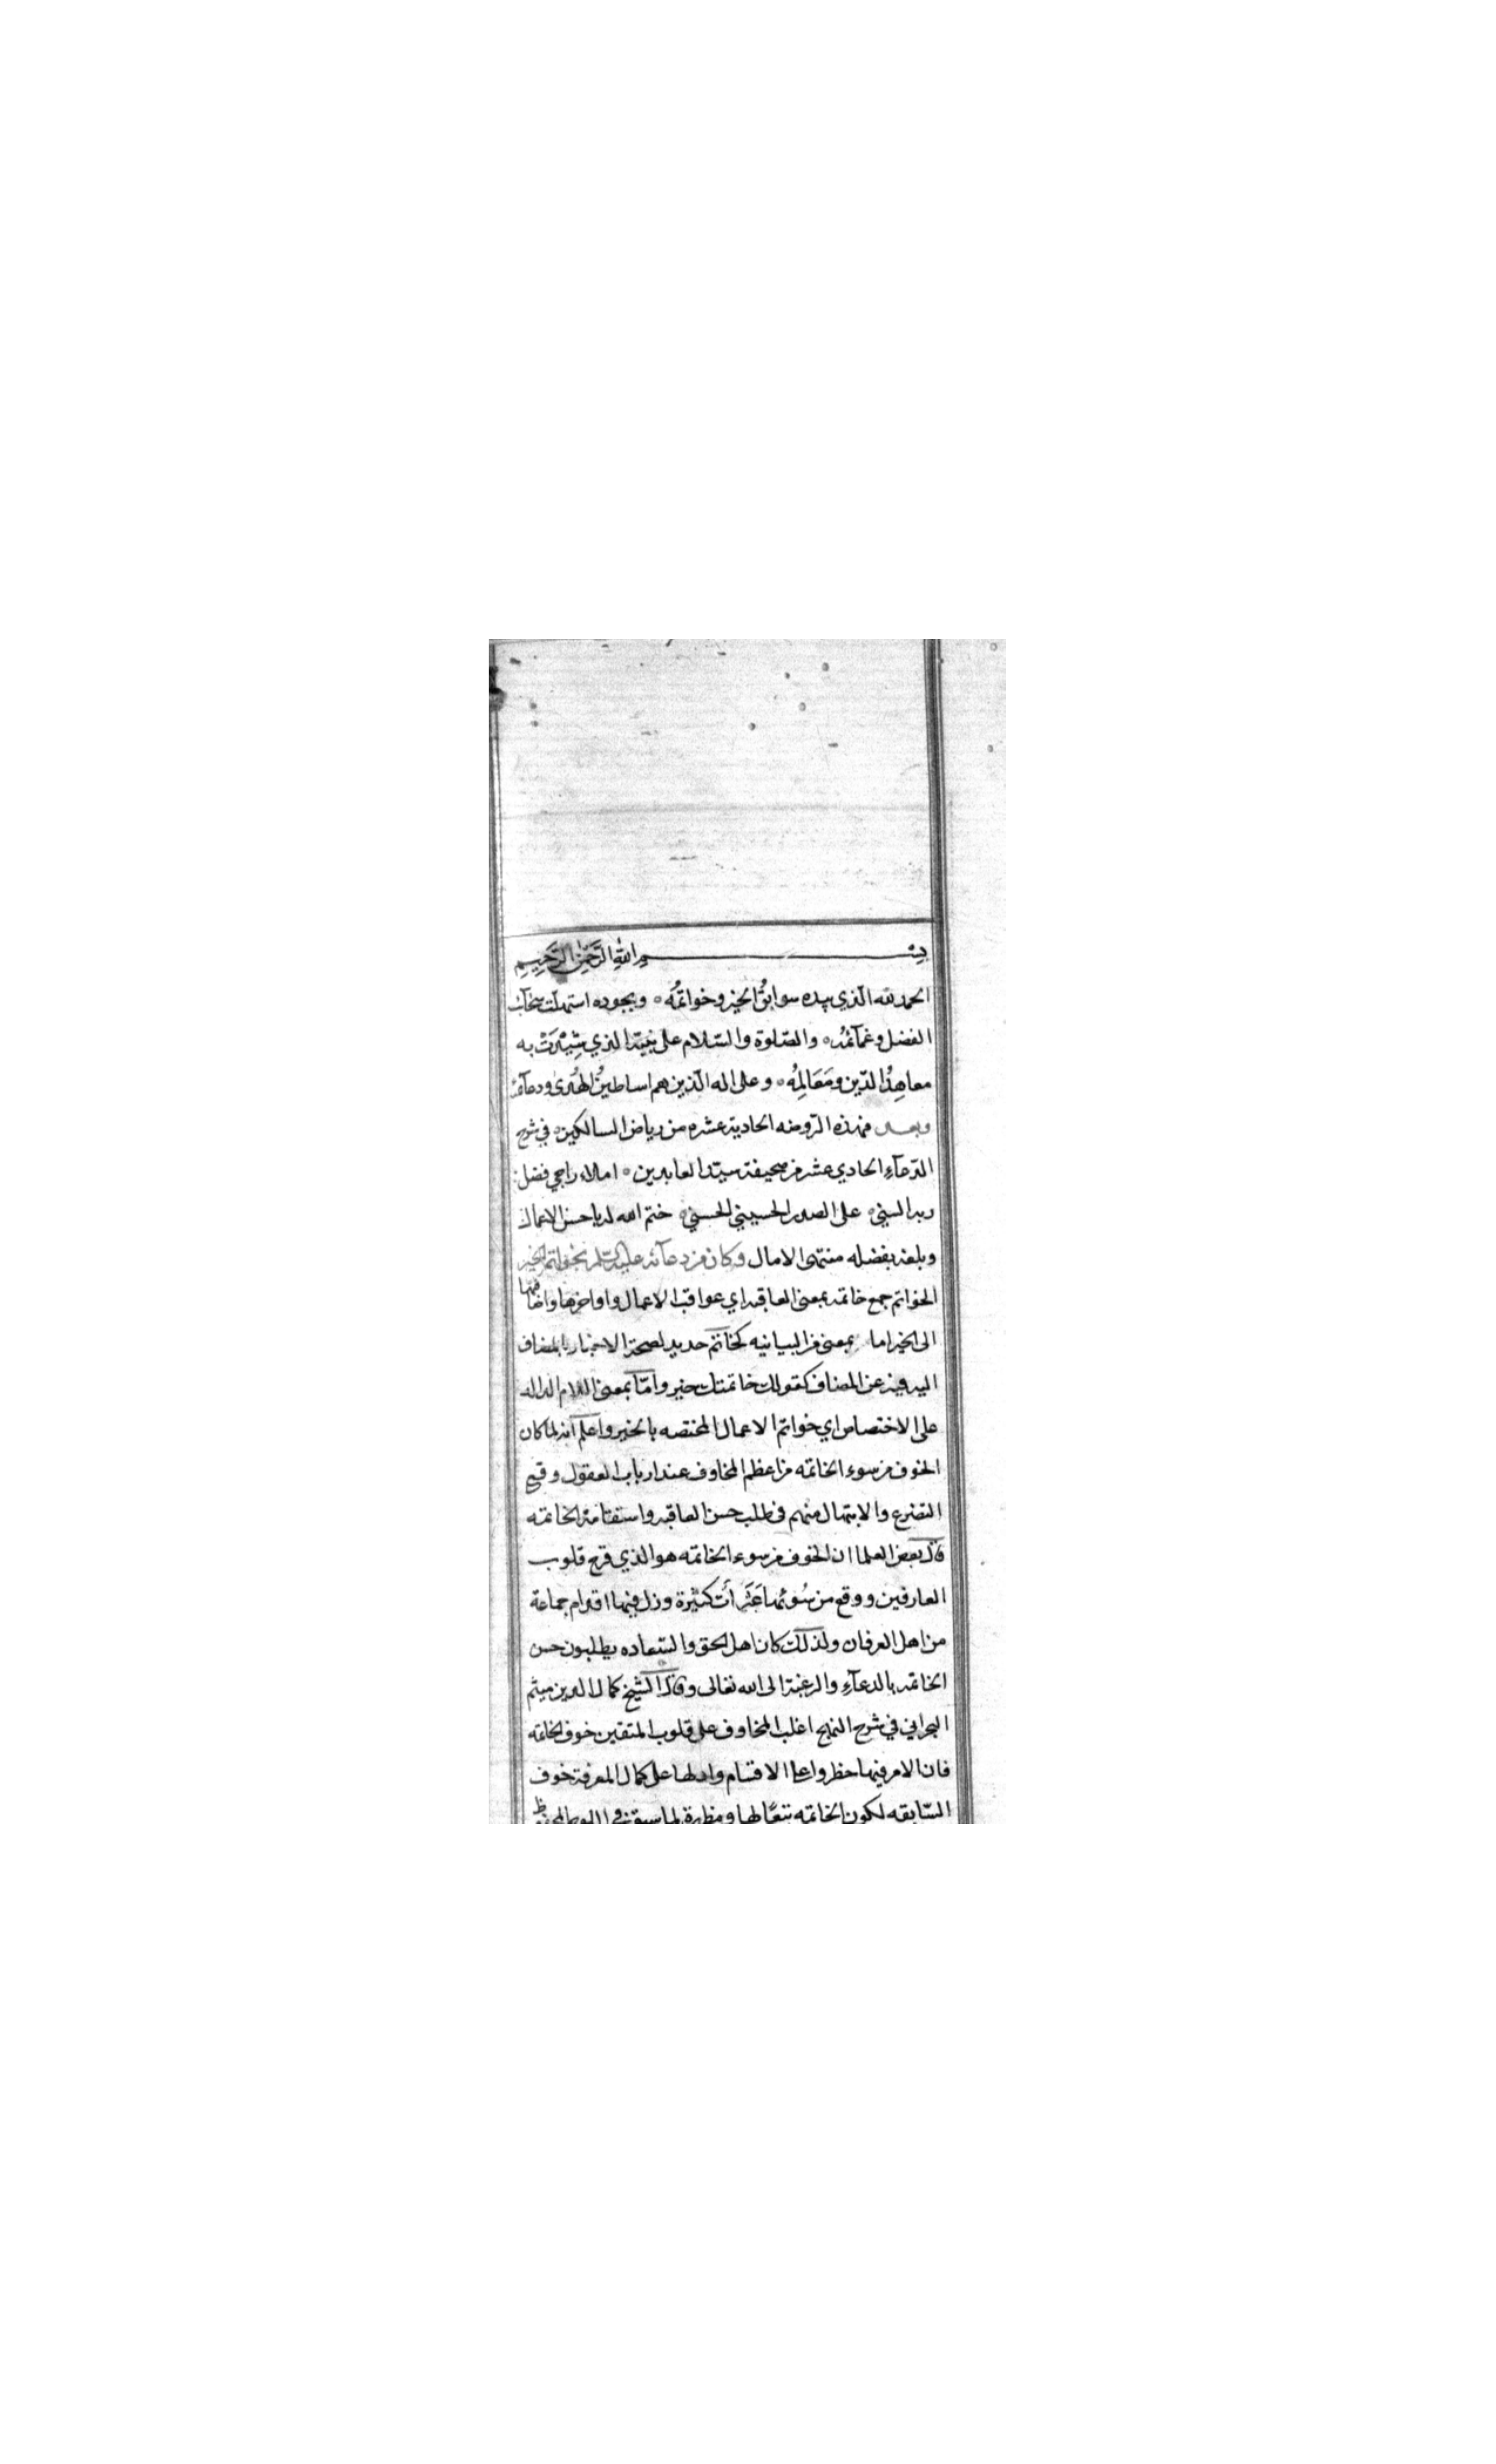 بسم الله الرحمن الرحيم
الحمد لله الذي بيده سوابقُ الخير وخواتمُه ۰ وبجوده استهلّت سحآئب
الفضل وغمآئمُه ۰ والصّلوة والسّلام على نبيّه الذي شُيِّدَتْ به
معاهِدُ الدّين ومَعَالِمُه ۰ وعلى اله الّذين هم اساطينُ الهُدىٰ ودعآئمه
وبعـد فهذه الرّوضه الحادية عشره من رياض السالكين ۰ في شرح
الدّعآءِ الحادي عشر من صحيفة سيّد العابدين ۰ املاء راجي فضل
ربه السني ۰ على الصدر الحسيني الحسني ۰ ختم الله له باحسن الاعمال
وبلغه بفضله منتهى الامال وكان من دعآئه عليه السّلم بخواتم الخير
الخواتم جمع خاتمه بمعنى العاقبه اي عواقب الاعمال واواخرها واضافتها
الى الخير اما بمعنى من البيانيه كخاتم حديد لصحة الاخبار بالمضاف
اليه فيه عن المضاف كقولك خاتمتك خير وامّا بمعنى اللام الداله
على الاختصاص اي خواتم الاعمال المختصه بالخير واعلم انه لما كان
الخوف من سوء الخاتمه من اعظم المخاوف عند ارباب العقول وقع
التضرع والابتهال منهم في طلب حسن العاقبه واستقامة الخاتمه
قال بعض العلما ان الخوف من سوء الخاتمه هو الذي قرح قلوب
العارفين ووقع من سُوئها عَثَرَاتٌ كثيرة وزل فيها اقدام جماعة
من اهل العرفان ولذلك كان اهل الحق والسّعاده يطلبون حسن
الخاتمه بالدعآءِ والرغبة الى الله تعالى وقال الشيخ كمال الدين ميثم
البحراني في شرح النهج اغلب المخاوف على قلوب المتقين خوف الخاتمه
فان الامر فيها خطر واعلا الاقسام وادلها على كمال المعرفة خوف
السّابقه لكون الخاتمه تبعًا لها ومظهرة لما سبق في اللوح المحفوظ